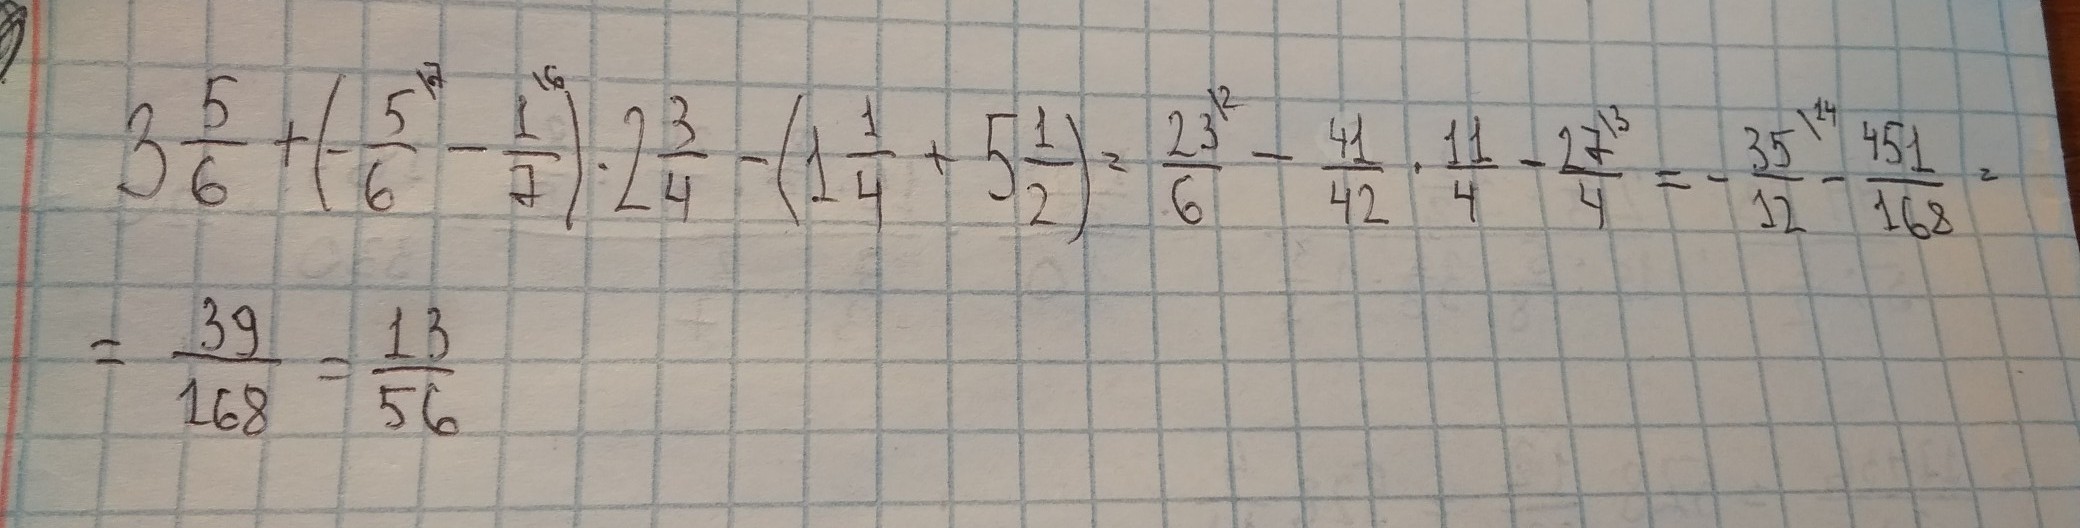 3 5/6 + (- 5/6 \7 - 1/7 \6) · 2 3/4 - (1 1/4 + 5 1/2) = 23/6 \2 - 41/42 · 11/4 - 27/4 \3 = - 35/12 \14 - 451/168 =
= 39/168 = 13/56